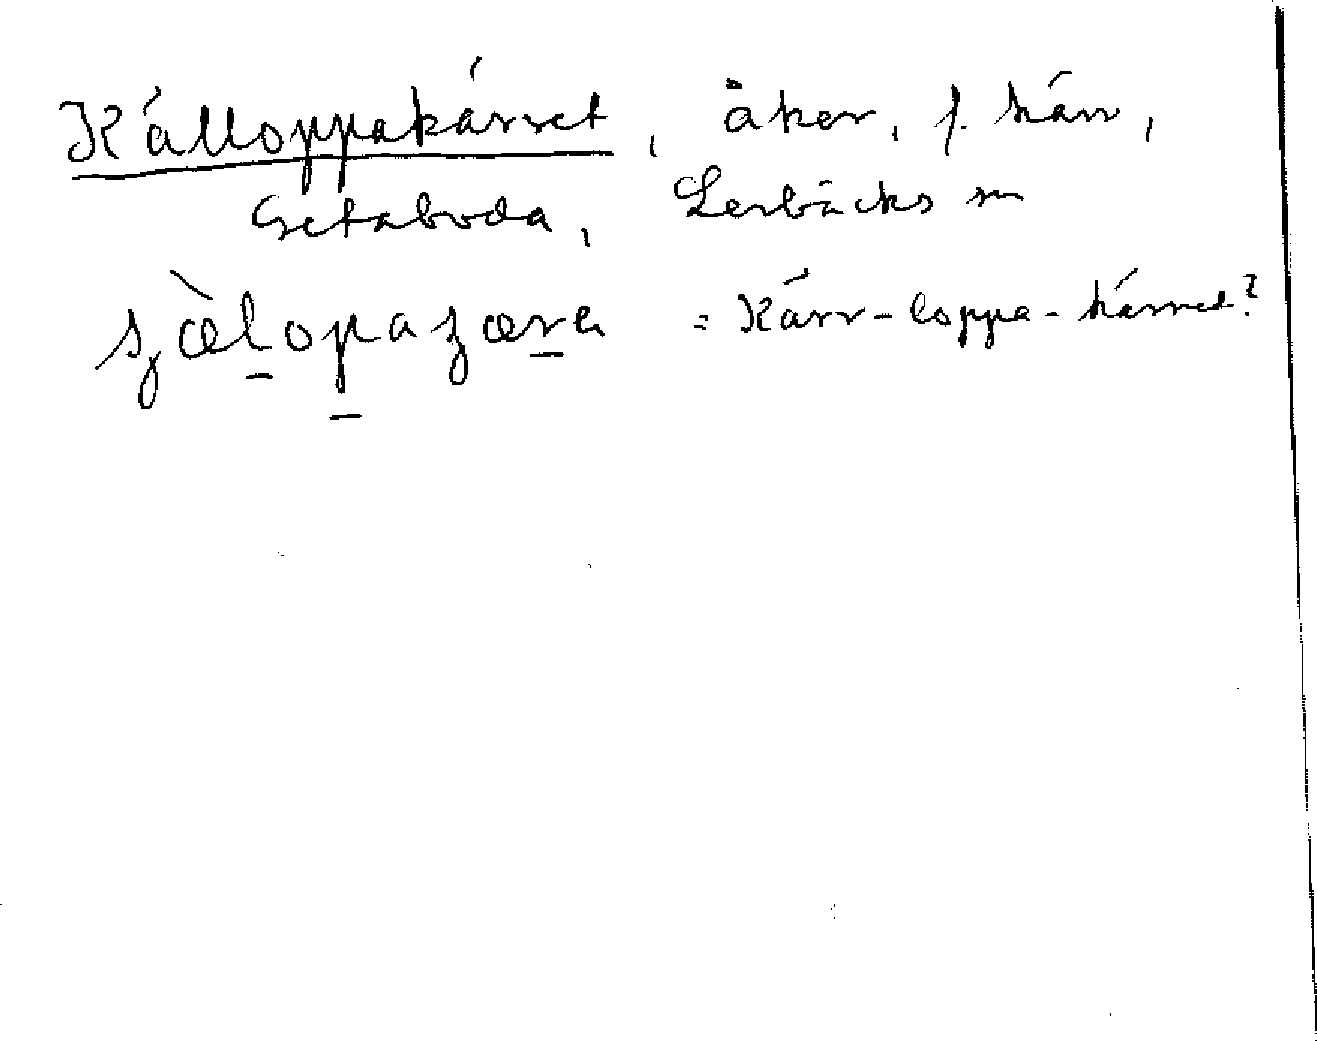 Källoppakärret, åker, f. kärr,
Getaboda, Lerbäcks sn
= Kärr-loppa-kärret?